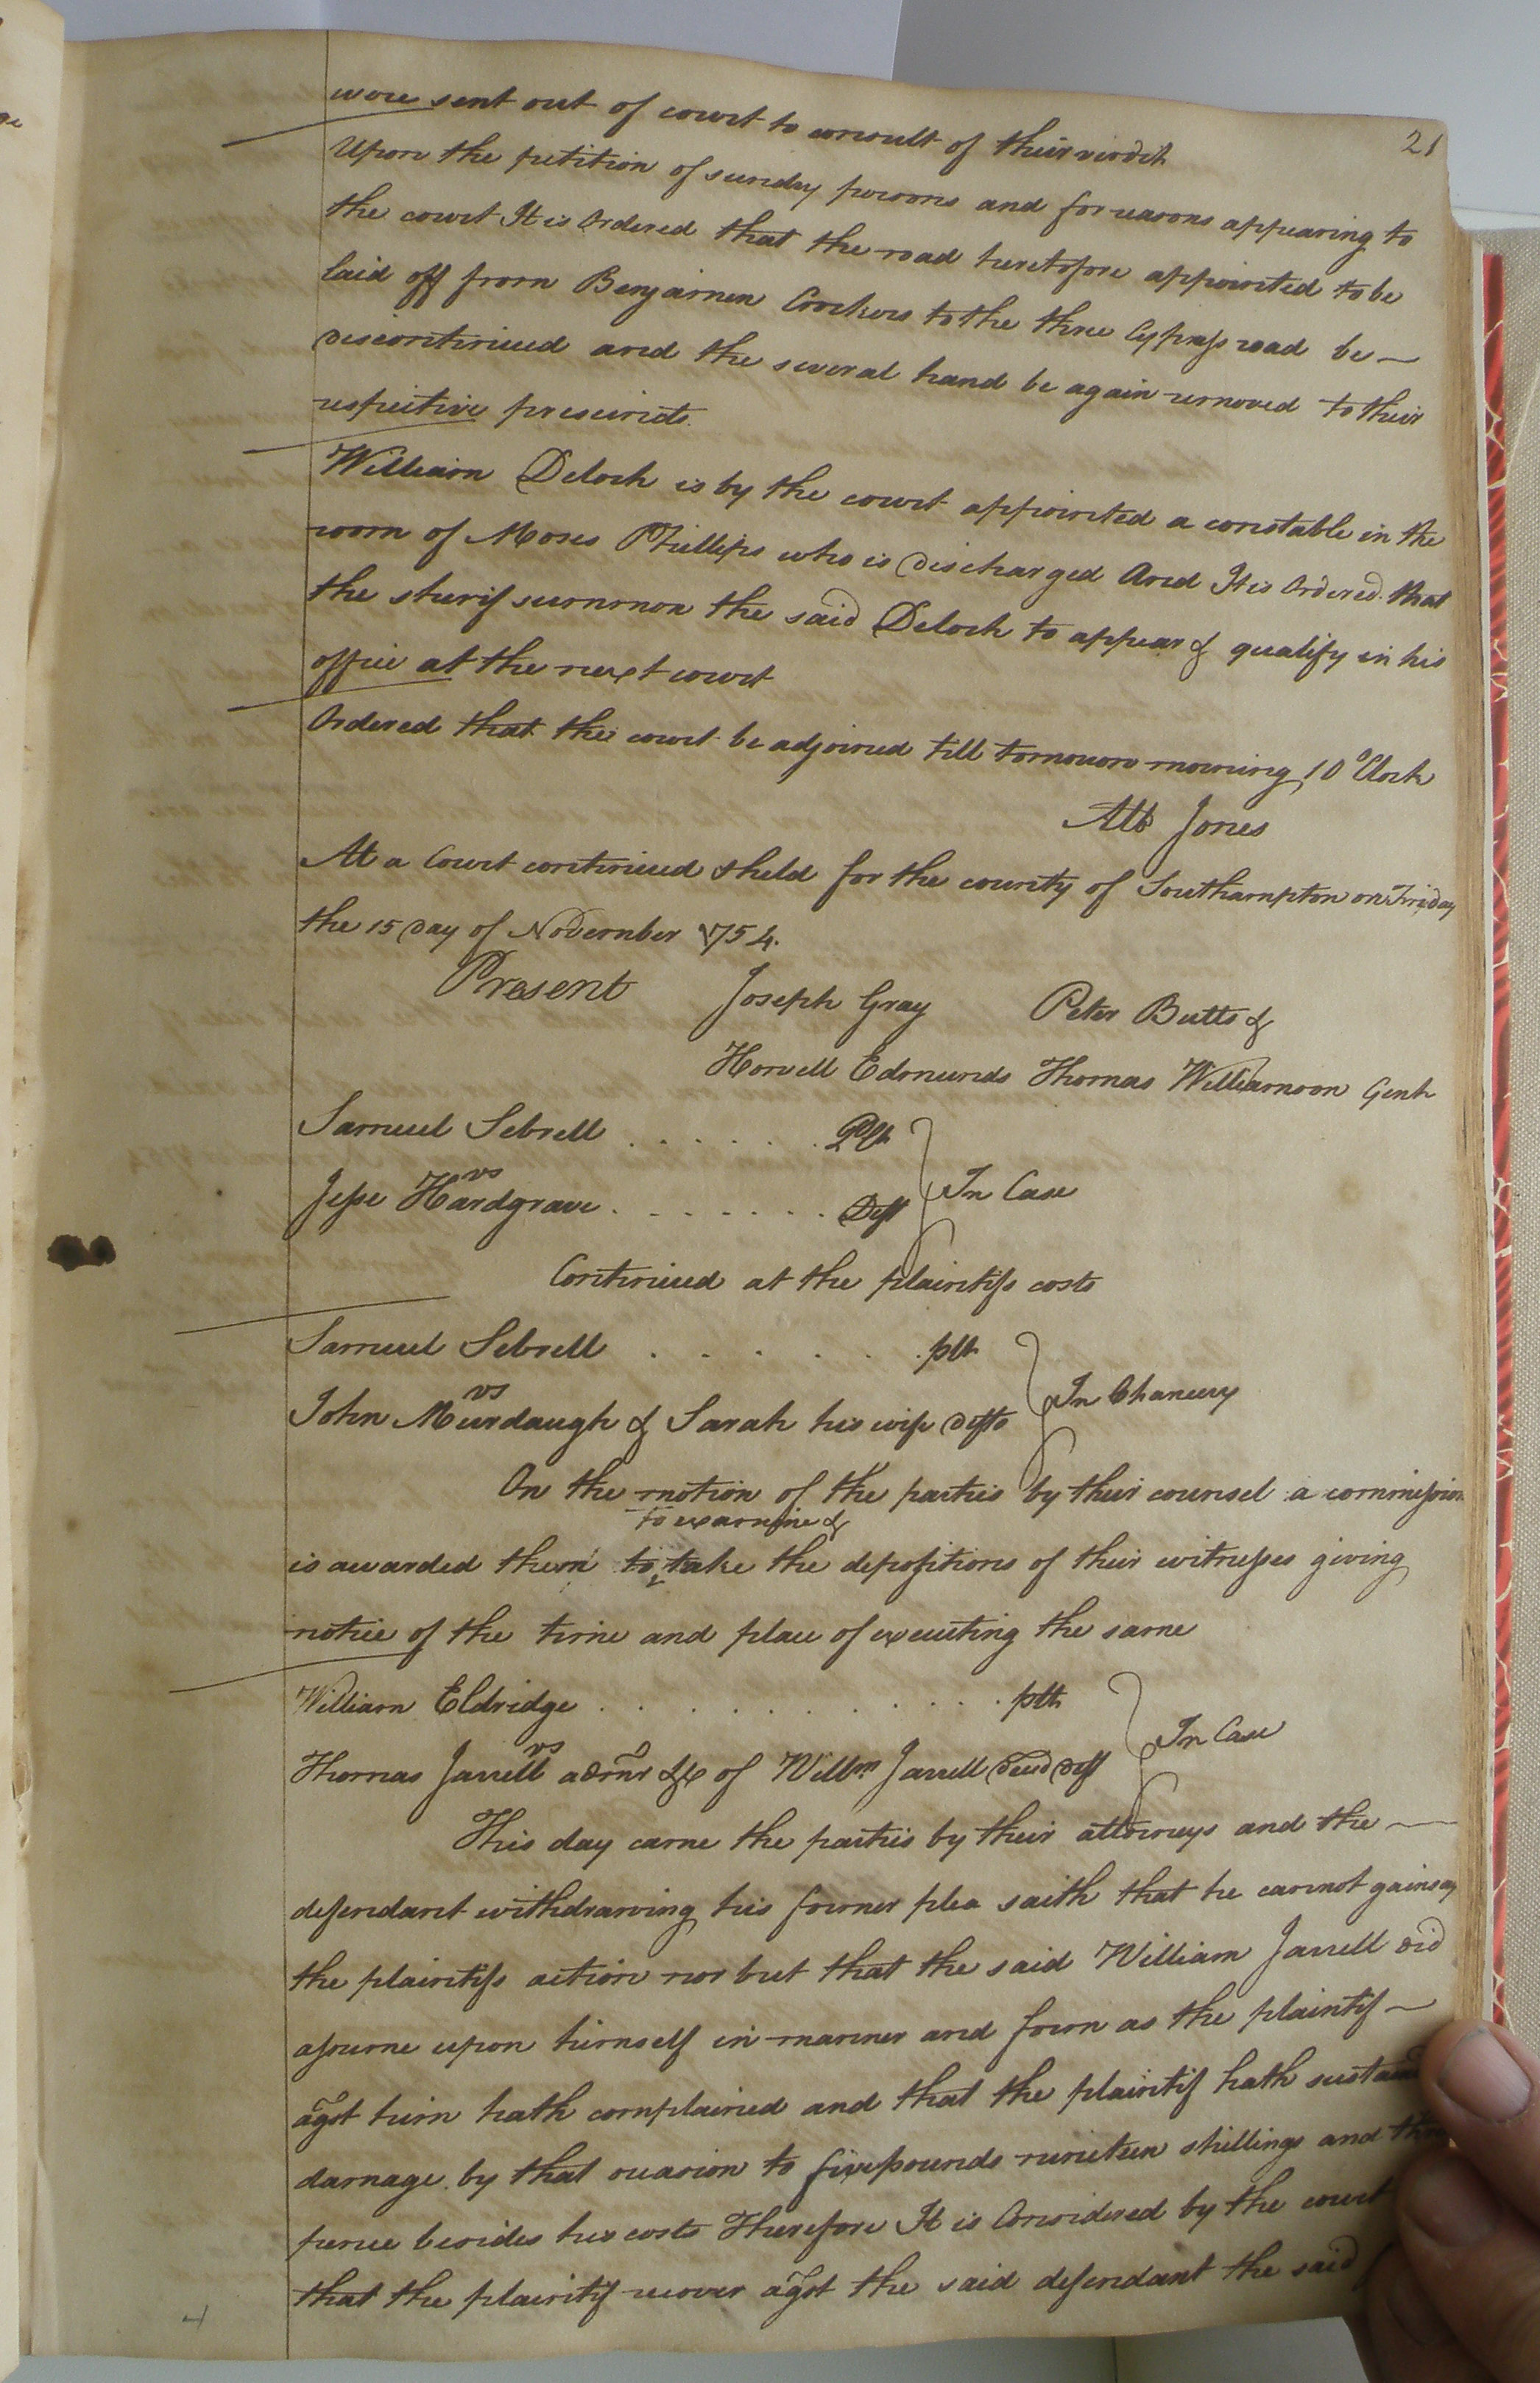 21
were sent out of court to consult of their verdit
Upon the petition of sundry persons and for reasons appearing to
the court It is Ordered that the road heretofore appointed to be
laid off from Benjamen Crockers to the three Cypress road be
discontinued and the several hand be again removed to their
respective prescincts.
William Deloch is by the court appointed a constable in the
room of Moses Phillips who is discharged And It is Ordered that
the sherif summon the said Deloch to appear & qualify in his
office at the next court
Ordered that the court be adjoined till tomorrow morning 10 oClock
Alb Jones
At a Court continued & held for the county of Southampton on Friday
the 15 day of November 1754.
Present Joseph Gray Peter Butts &
Howell Edmunds Thomas Williamson Gent
Samuel Sebrell . . . . . . . Plt
vs
In Case
Jesse Hardgrave . . . . . . . Deft
Continued at the plaintifs costs
Samuel Sebrell . . . . . . . plt
vs
In Chancery
John Murdaugh & Sarah his wife defts
On the motion of the parties by their counsel a commission
to examine &
is awarded them to take the depositions of their witnesses giving
notice of the time and place of executing the same
William Eldridge . . . . . . . . . . plt
vs
In Case
Thomas Jarrell admr &c of Willm Jarrell decd deft
This day came the parties by their attorneys and the
defendant withdrawing his former plea saith that he cannot gainsay
the plaintifs action nor but that the said William Jarrell did
assume upon himself in manner and form as the plaintif
agst him hath complained and that the plaintif hath sustaind
damage by that ocasion to five pounds nineteen shillings and
pence besides his costs Therefore It is Considered by the court
that the plaintif recover agst the said defendant the said
4